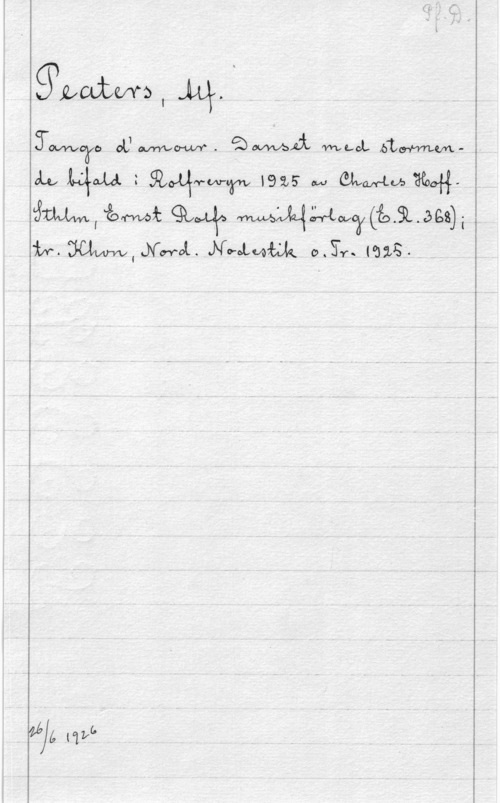 Pf. D.
Peaters, Alf.
Tango d'amour. Danset med stormen-
de bifald i Rolfrevyn 1925 av Charles Hoff.
Sthlm, Ernst Rolfs musikförlag (E.R.368);
tr. Khvn, Nord. Nodestik o. Tr. 1925.
26/6 1926